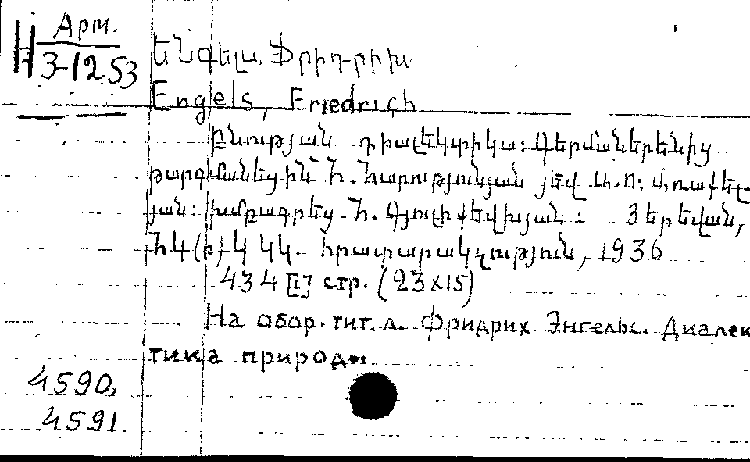 Арм.
3-1253
Ենգելս, Ֆրիդրիխ
Engels, Friedrich
Բնության դիալեկտիկա: Գերմաներենից
թարգմանեցին Հ. Հարությունյան յեվ Ա. Ռ. Առաքել
յան: Խմբագրեց Հ. Գյուլիքեվխյան: Յերեվան,
ՀԿ(բ)Կ ԿԿ հրատարակչություն, 1936
434 [1] стр. (23x15)
На обор. тит. л. Фридрих Энгельс. Диалек
тика природы
4590,
4591